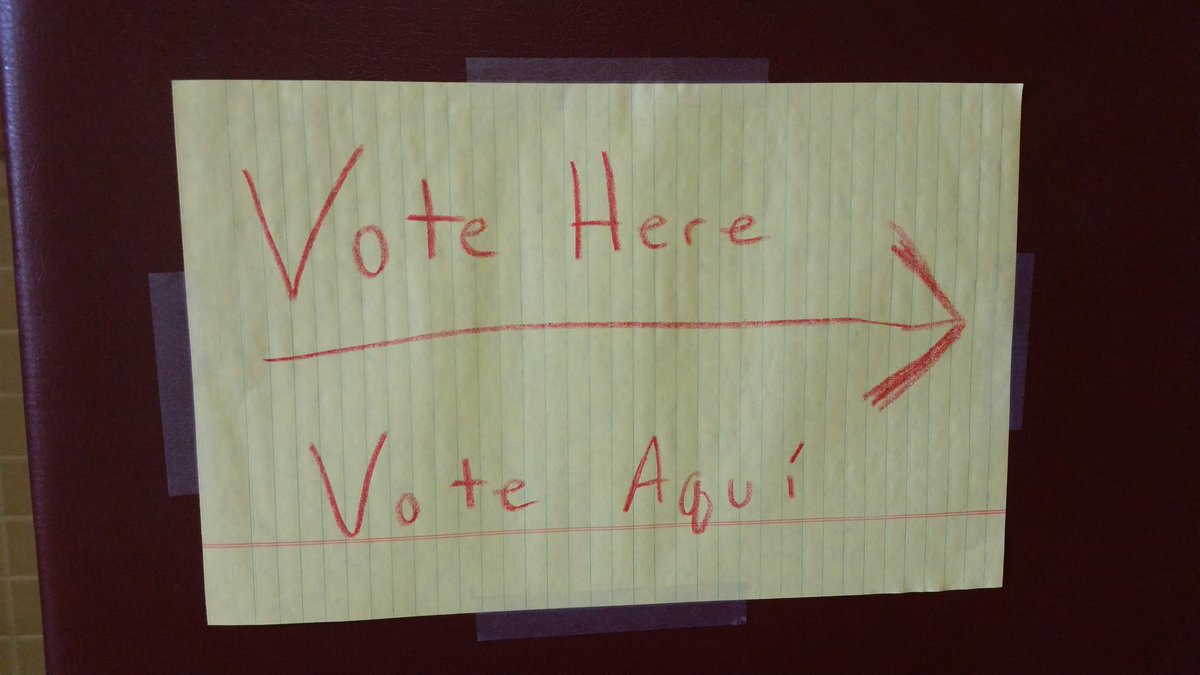 Vote Here
Vote Aquí